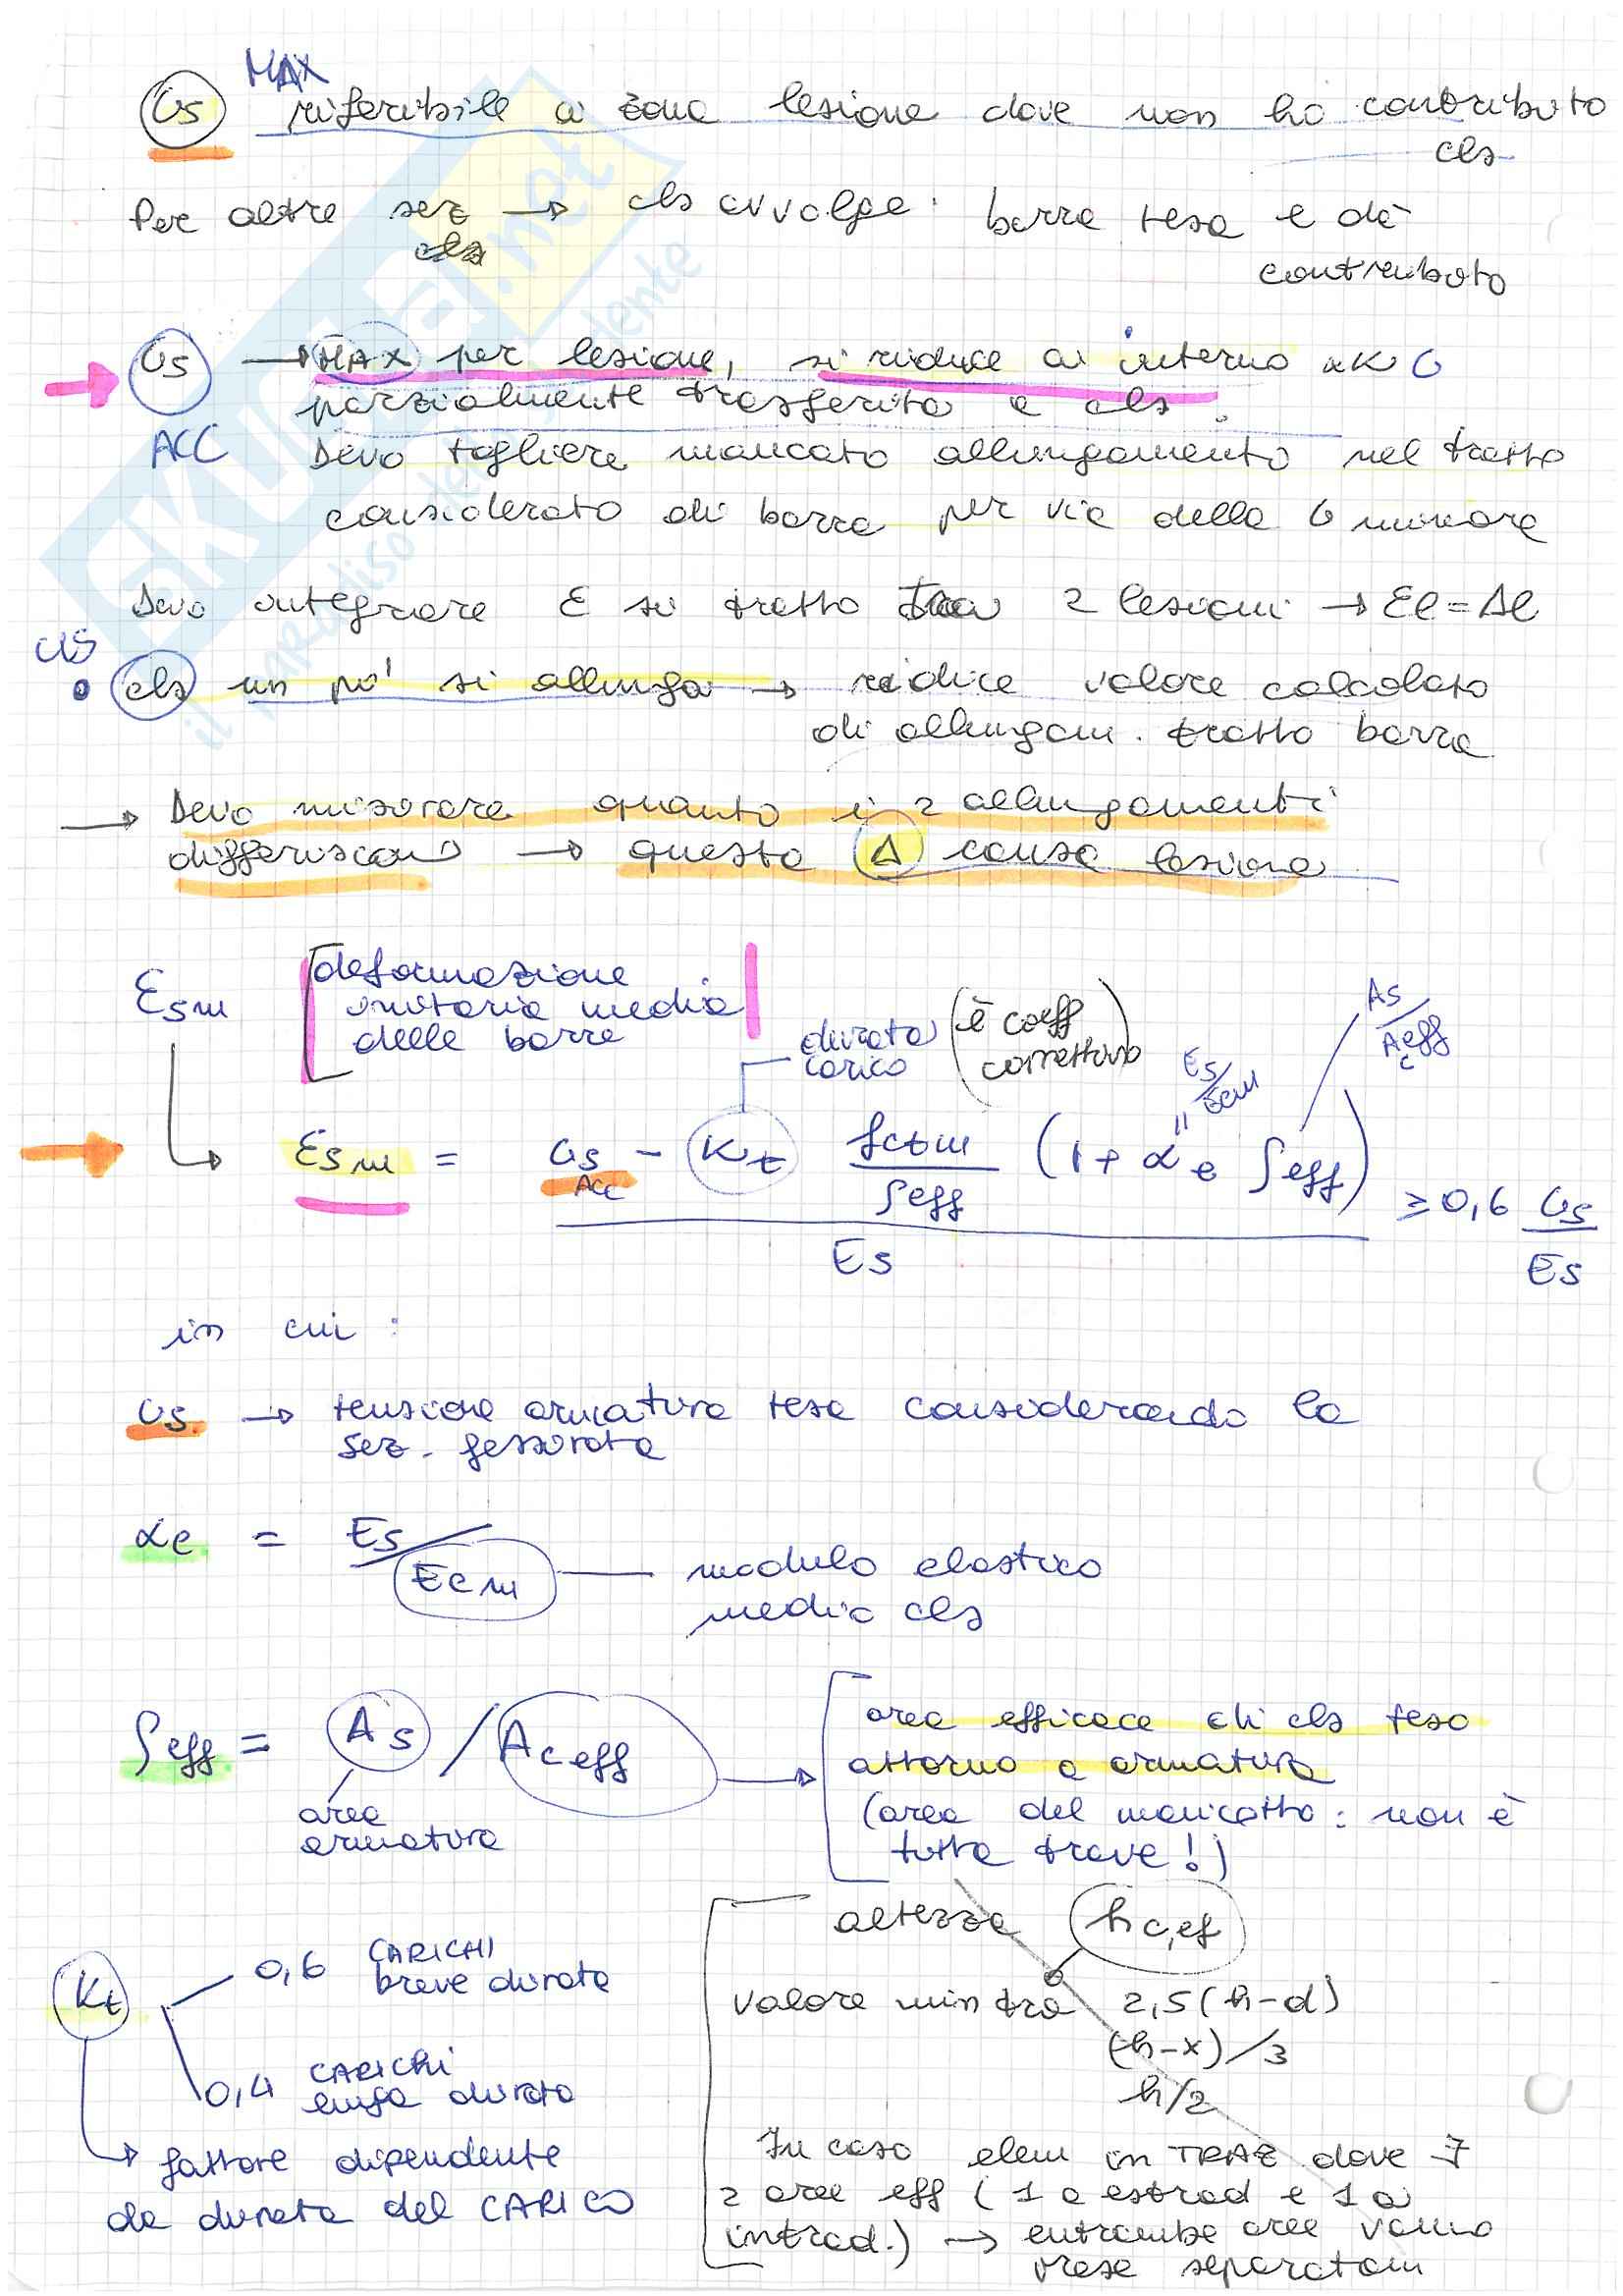 MAX
σs riferibile a zona lesione dove non ho contributo
cls
Per altre sez → cls avvolge barra tesa e dà
contributo
σs → MAX per lesione, si riduce a interno xk σ
ACC parzialmente trasferita a cls.
Devo togliere mancato allungamento nel tratto
considerato di barra per via della σ minore
Devo integrare ε su tratto tra 2 lesioni → εl = Δl
cls
• cls un po' si allunga → riduce valore calcolato
di allungam. tratto barra
→ Devo misurare quanto i 2 allungamenti
differiscono → questo Δ causa lesione
εsm [deformazione
unitaria media
delle barre
durata carico (è coeff correttivo)
Es/Ecm
As/Aceff
εsm = (σs - Kt fctm/ρeff (1 + αe ρeff)) / Es ≥ 0,6 σs/Es
ACC
in cui :
σs → tensione armatura tesa considerando la
sez. fessurata
αe = Es/Ecm — modulo elastico
medio cls
ρeff = As / Aceff → area efficace di cls teso
attorno a armatura
(area del manicotto : non è
tutta trave!)
area
armatura
altezza hc,ef
valore min tra 2,5(h-d)
(h-x)/3
h/2
In caso elem in TRAZ dove ∃
2 aree eff (1 a estrad e 1 a
intrad.) → entrambe aree vanno
prese separatam
Kt 0,6 CARICHI
breve durata
0,4 CARICHI
lunga durata
→ fattore dipendente
da durata del CARICO
SKUOLA.net
il paradiso dello studente